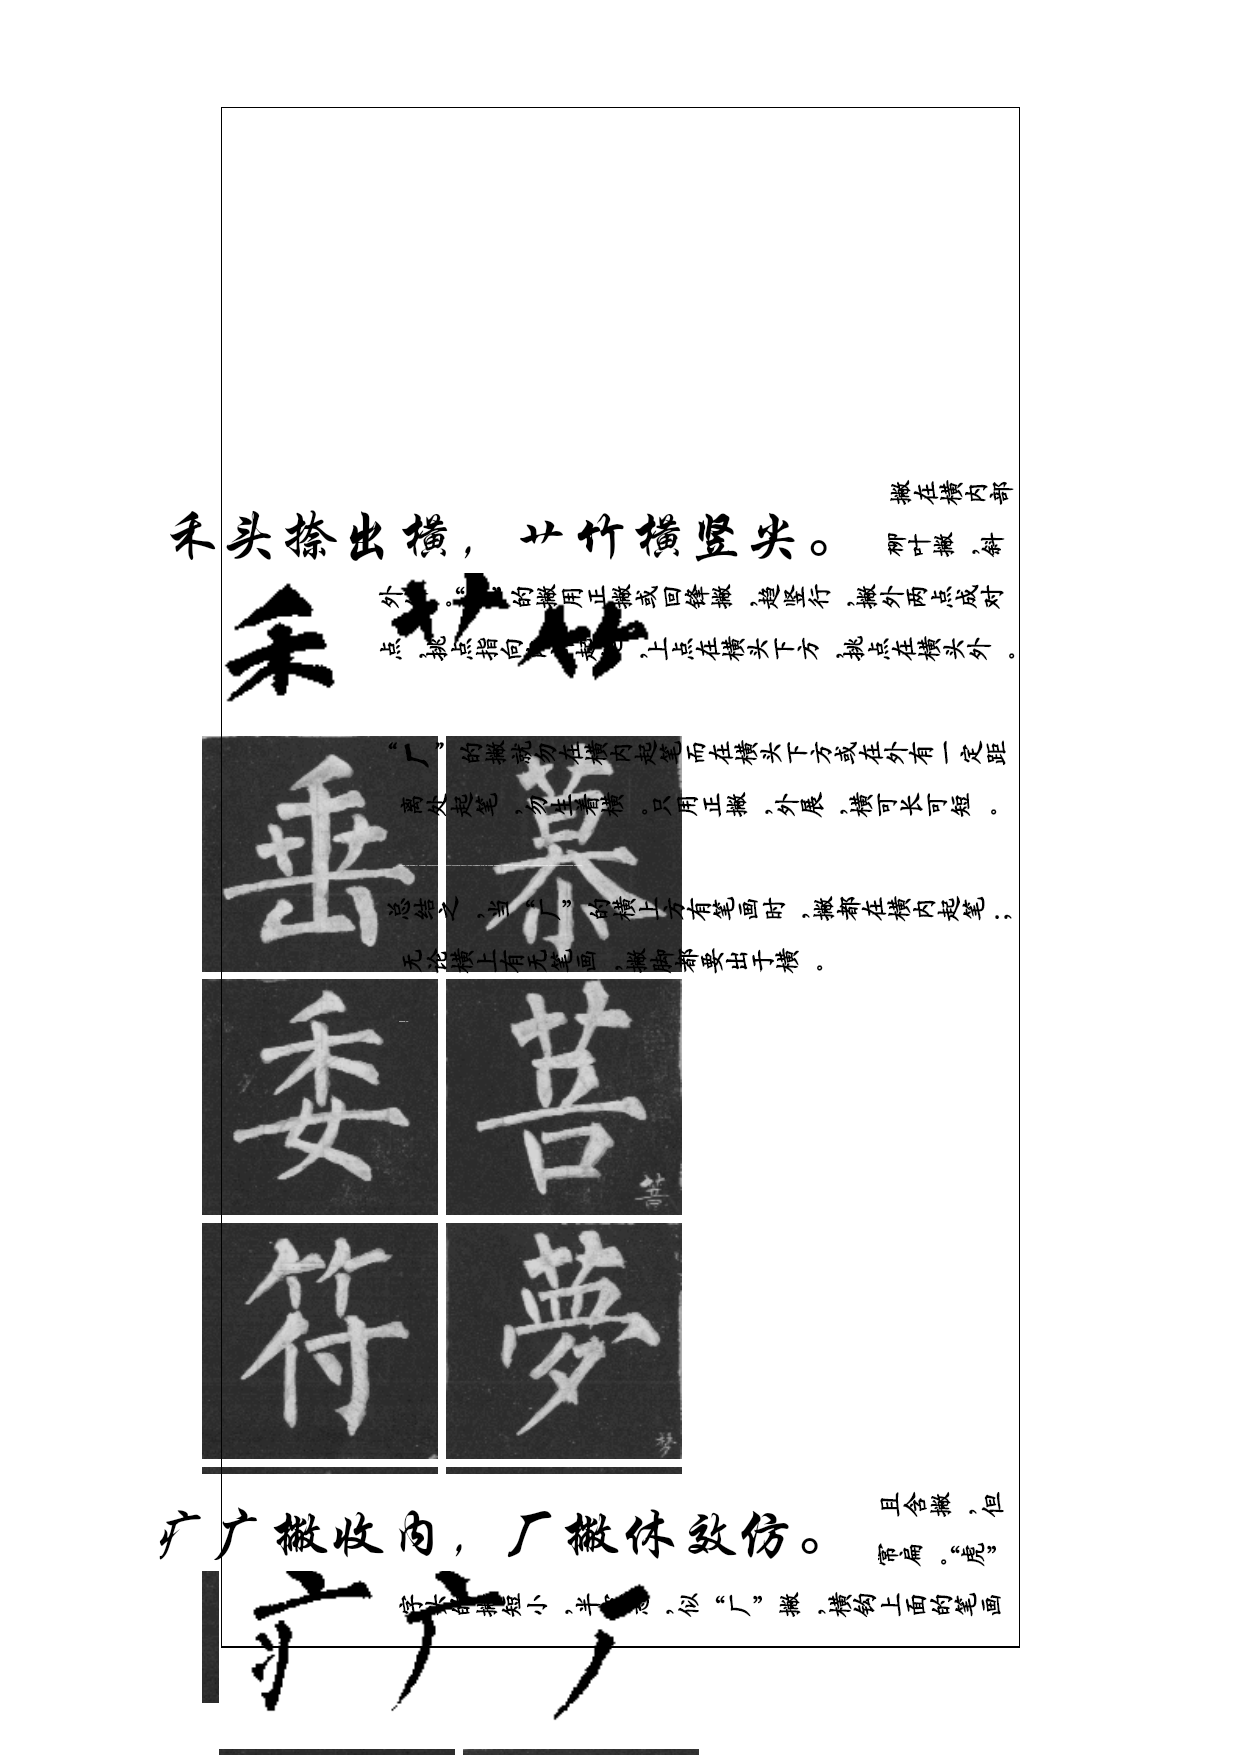 撇在横内部
禾头捺出横，艹竹横竖尖。
柳叶撇,斜
禾 艹 竹
外 。“ ”的撇用正撇或回锋撇,趋竖行,撇外两点成对
点,挑点指向 起 ,上点在横头下方,挑点在横头外。
“厂”的撇就勿在横内起笔而在横头下方或在外有一定距
离处起笔,勿生着横。只用正撇,外展,横可长可短。
垂 慕
总结之,当“厂”的横上方有笔画时,撇都在横内起笔.,
无论横上有无笔画,撇脚都要出于横。
委 菩
菩
符 夢
梦
且含撇,但
疒广撇收内，厂撇休效仿。
常扁。“虎”
字头的撇短小,半 ,似“厂”撇,横钩上面的笔画
疒 广 厂